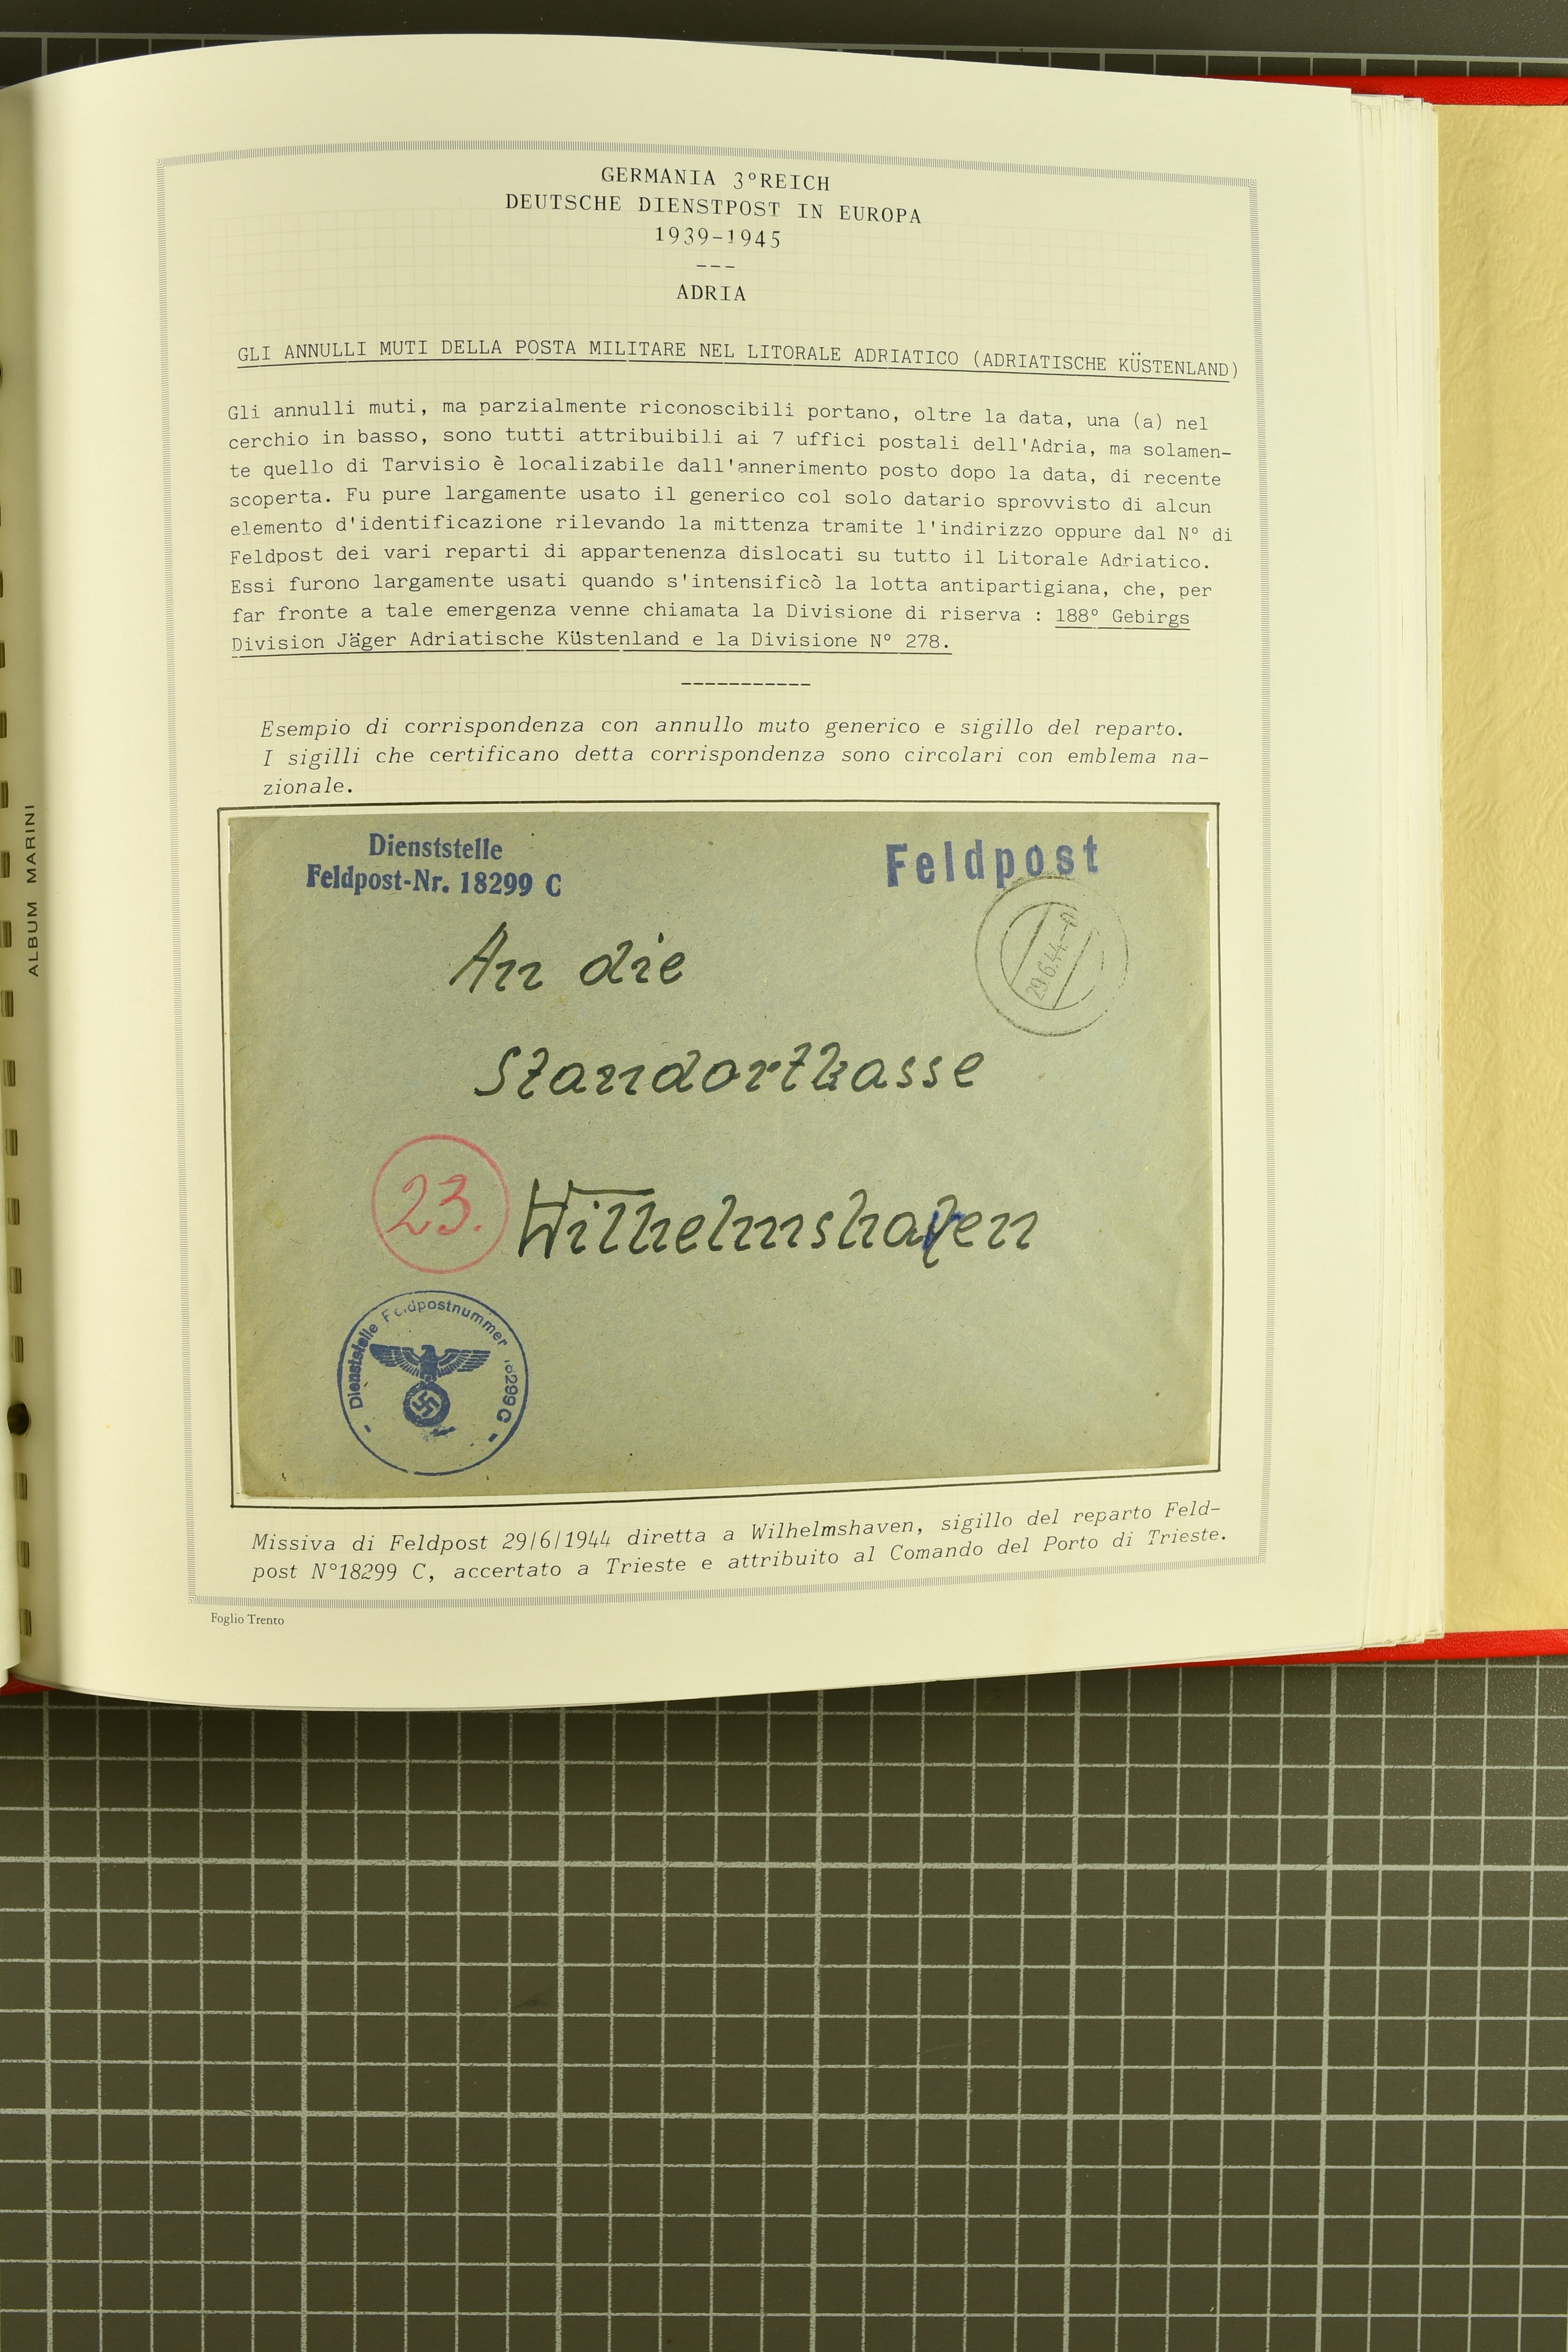 GERMANIA 3°REICH
DEUTSCHE DIENSTPOST IN EUROPA
1939-1945
---
ADRIA
GLI ANNULLI MUTI DELLA POSTA MILITARE NEL LITORALE ADRIATICO (ADRIATISCHE KÜSTENLAND)
Gli annulli muti, ma parzialmente riconoscibili portano, oltre la data, una (a) nel
cerchio in basso, sono tutti attribuibili ai 7 uffici postali dell'Adria, ma solamen-
te quello di Tarvisio è localizabile dall'annerimento posto dopo la data, di recente
scoperta. Fu pure largamente usato il generico col solo datario sprovvisto di alcun
elemento d'identificazione rilevando la mittenza tramite l'indirizzo oppure dal N° di
Feldpost dei vari reparti di appartenenza dislocati su tutto il Litorale Adriatico.
Essi furono largamente usati quando s'intensificò la lotta antipartigiana, che, per
far fronte a tale emergenza venne chiamata la Divisione di riserva : 188° Gebirgs
Division Jäger Adriatische Küstenland e la Divisione N° 278.
-----------
Esempio di corrispondenza con annullo muto generico e sigillo del reparto.
I sigilli che certificano detta corrispondenza sono circolari con emblema na-
zionale.
Dienststelle
Feldpost-Nr. 18299 C
Feldpost
29.6.44
An die
Standortkasse
23.
Wilhelmshaven
Dienststelle Feldpostnummer 18299 C
Missiva di Feldpost 29/6/1944 diretta a Wilhelmshaven, sigillo del reparto Feld-
post N°18299 C, accertato a Trieste e attribuito al Comando del Porto di Trieste.
Foglio Trento
ALBUM MARINI